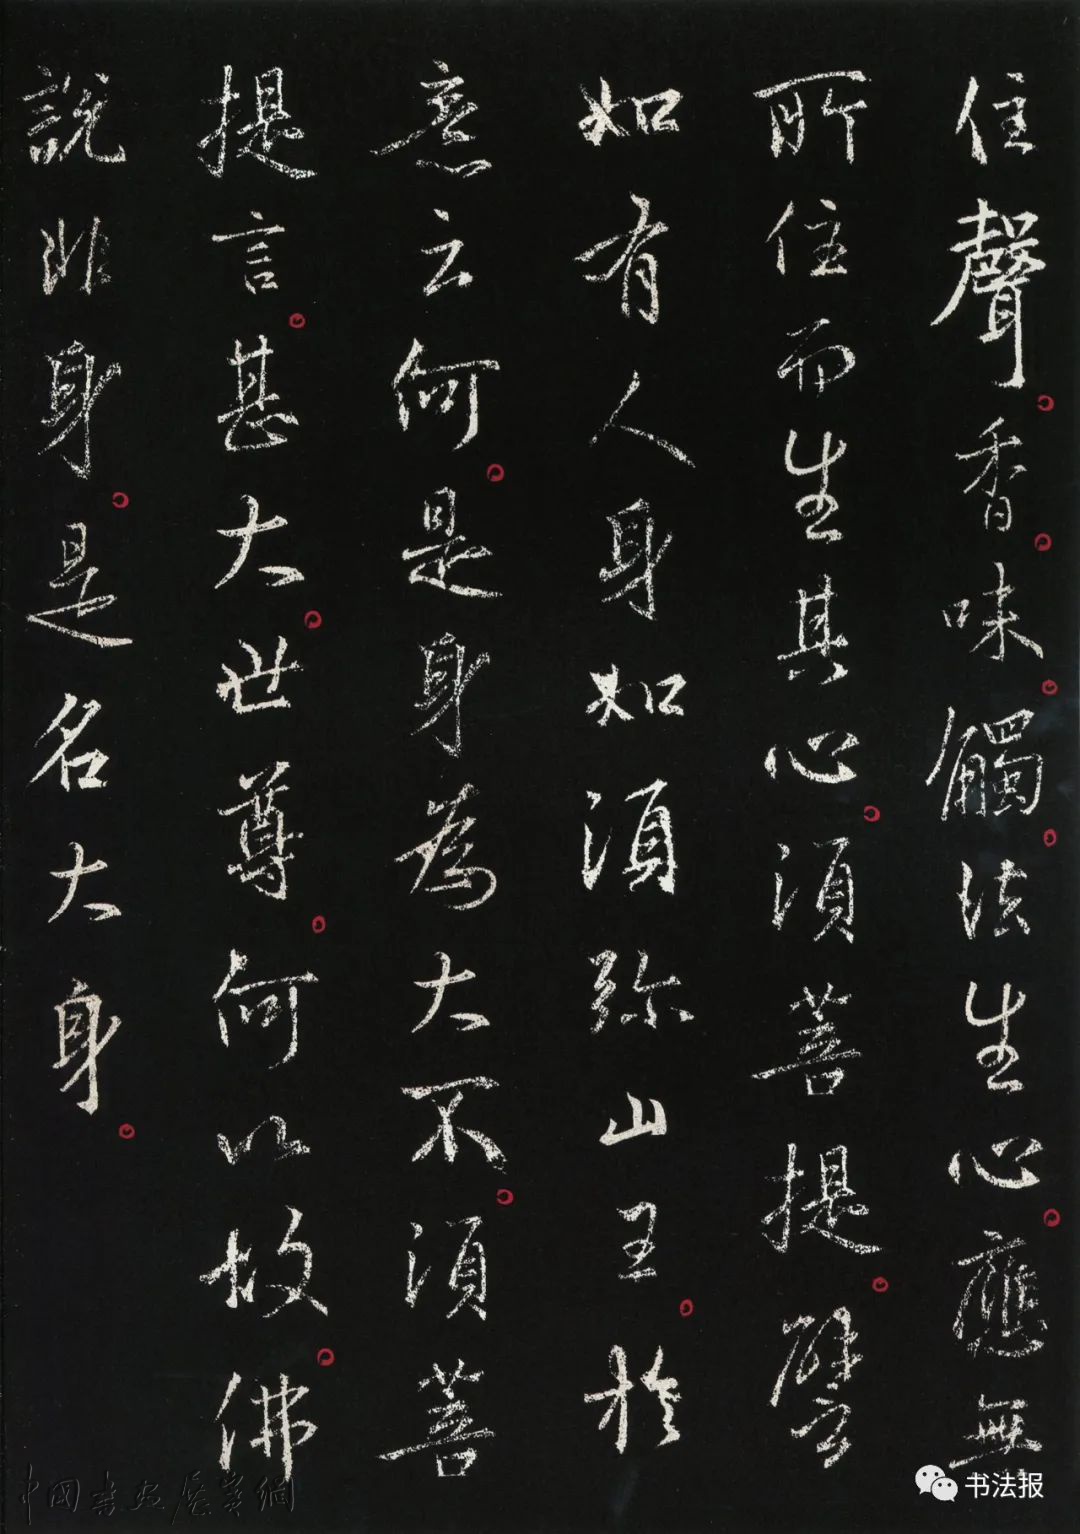 住聲。香。味。觸。法生心。應無
所住而生其心。須菩提。譬
如有人身如須弥山王。於
意云何。是身為大不。須菩
提言。甚大。世尊。何以故。佛
說非身。是名大身。
书法报
中國書法展賽網